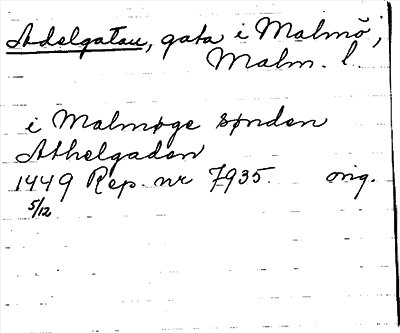 Adelgatan, gata i Malmö,
Malm. l.
i Malmøge synden
Athelgaden
1449 Rep. nr 7935. orig.
5/12